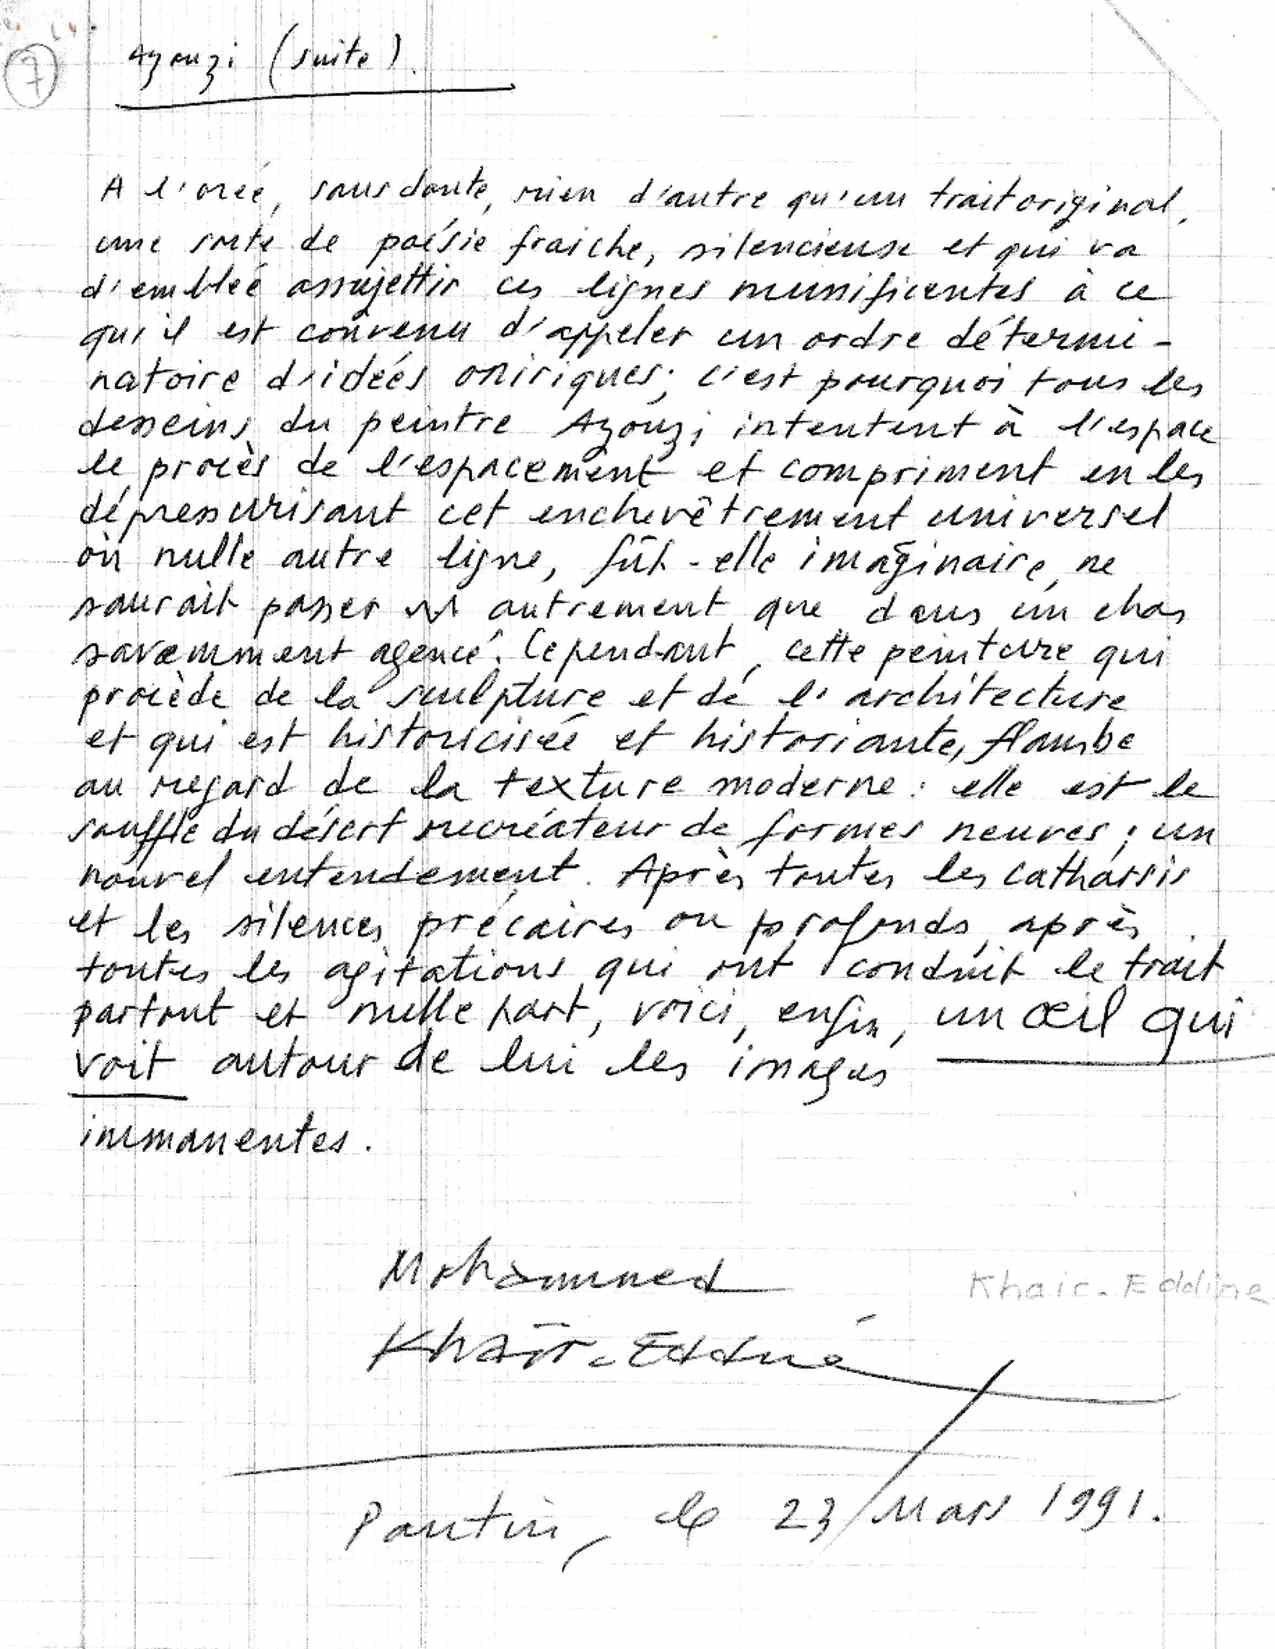 7
Azouzi (suite).
A l'orée, sans doute, rien d'autre qu'un trait original,
une sorte de poésie fraîche, silencieuse et qui va
d'emblée assujettir ces lignes munificentes à ce
qu'il est convenu d'appeler un ordre détermi-
natoire d'idées oniriques; c'est pourquoi tous les
desseins du peintre Azouzi intentent à l'espace
le procès de l'espacement et compriment en les
dépressurisant cet enchevêtrement universel
où nulle autre ligne, fût-elle imaginaire, ne
saurait passer autrement que dans un chas
savamment agencé. Cependant, cette peinture qui
procède de la sculpture et de l'architecture
et qui est historicisée et historiante, flambe
au regard de la texture moderne : elle est le
souffle du désert recréateur de formes neuves ; un
nouvel entendement. Après toutes les catharsis
et les silences précaires ou profonds, après
toutes les agitations qui ont conduit le trait
partout et nulle part, voici, enfin, un œil qui
voit autour de lui les images
immanentes.
Mohammed
Khaïr-Eddine
Khair-Eddine
Pantin, le 23 Mars 1991.